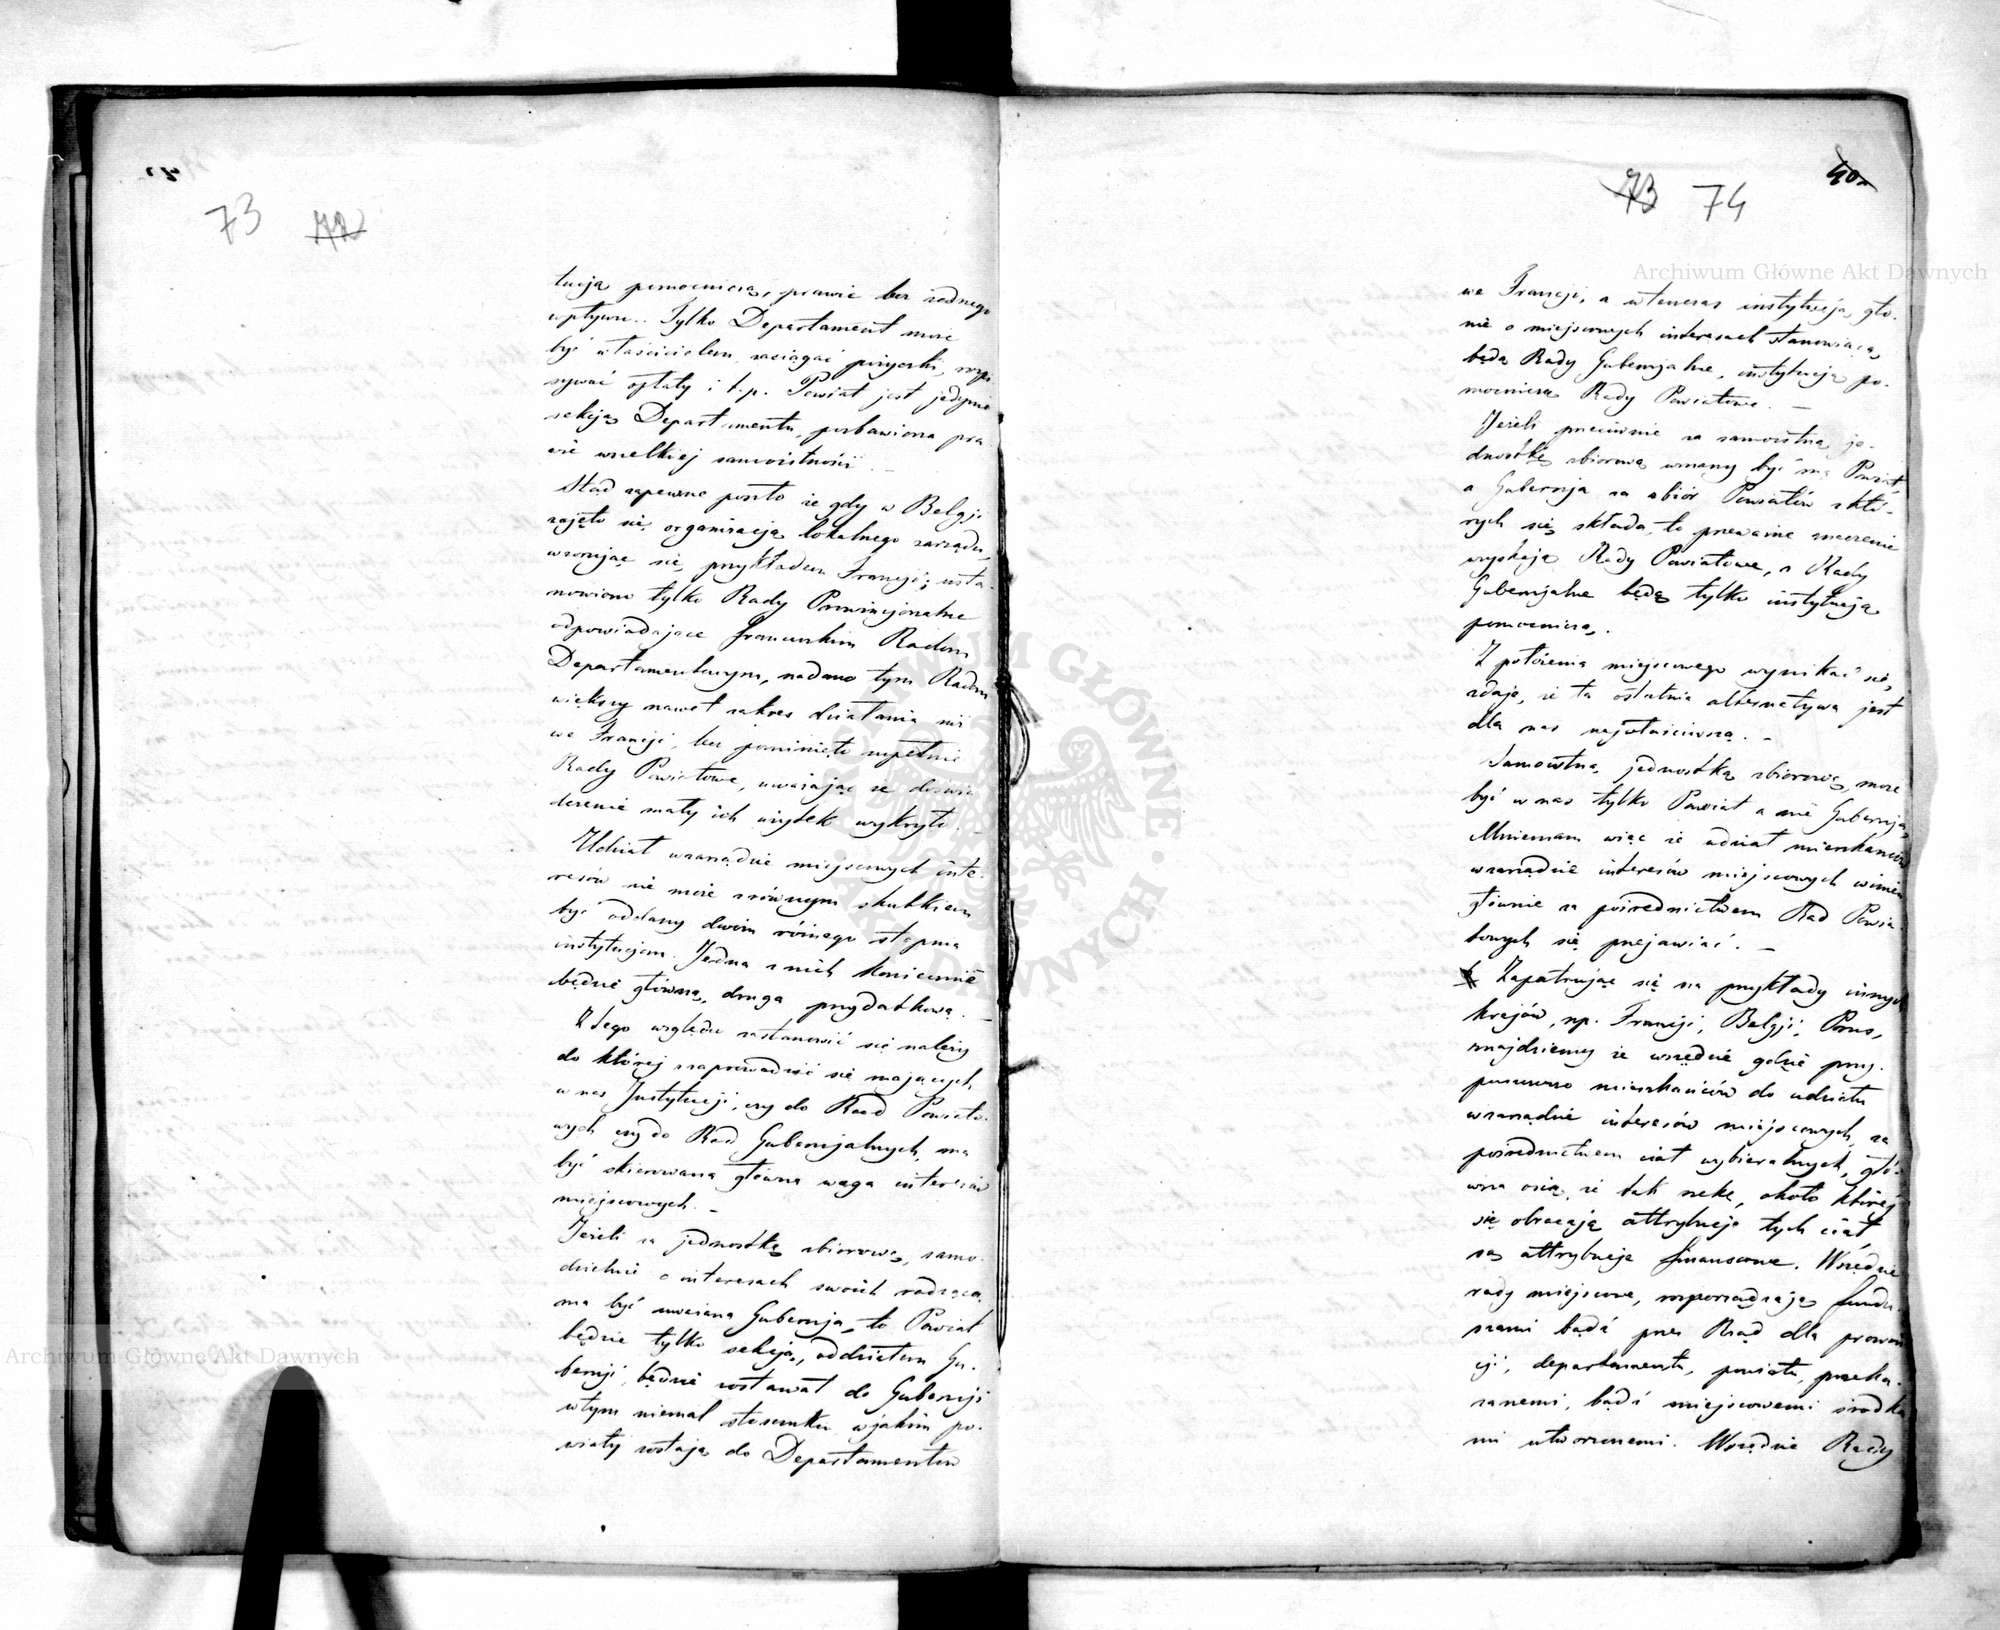 73 72
tucją pomocniczą, prawie bez żadnego
wpływu.. Tylko Departament może
być właścicielem, zaciągać pożyczki, rozpi
sywać opłaty i t. p. Powiat jest jedynie
sekcją Departamentu, pozbawioną pra
wie wszelkiej samoistności. —
Stąd zapewne poszło że gdy w Belgji
zajęto się organizacją lokalnego zarządu,
wzorując się przykładem Francji; usta
nowiono tylko Rady Prowincjonalne
odpowiadające francuskim Radom
Departamentowym, nadano tym Radom
większy nawet zakres działania niż
we Francji, lecz pominięto zupełnie
Rady Powiatowe, uważając że doświad
czenie mały ich użytek wykryło. —
Udział w zarządzie miejscowych inte-
resów nie może z równym skutkiem
być oddany dwóm różnego stopnia
instytucjom. Jedna z nich koniecznie
będzie główną, druga przydatkową. —
Z tego względu zastanowić się należy
do której zaprowadzić się mających
u nas Instytucji, czy do Rad Powiato-
wych czy do Rad Gubernjalnych, ma
być skierowana główna waga interesów
miejscowych. —
Jeżeli za jednostkę zbiorową, samo-
dzielnie o interesach swoich radzącą,
ma być uważana Gubernja, to Powiat
będzie tylko sekcją, oddziałem Gu-
bernji, będzie zostawał do Gubernji
w tym niemal stosunku w jakim po-
wiaty zostają do Departamentu
73 74
40
we Francji, a wtenczas instytucją, głó-
nie o miejscowych interesach stanowiącą
będą Rady Gubernjalne, instytucją po-
mocniczą Rady Powiatowe. —
Jeżeli przeciwnie za samoistną je-
dnostkę zbiorową uznany być ma Powiat
a Gubernja za zbiór Powiatów z któ-
rych się składa, to przeważne znaczenie
uzyskają Rady Powiatowe, a Rady
Gubernjalne będą tylko instytucją
pomocniczą.
Z położenia miejscowego wynikać się
zdaje, że ta ostatnia alternatywa jest
dla nas najwłaściwszą. —
Samoistną jednostką zbiorową, może
być u nas tylko Powiat a nie Gubernja.
Mniemam więc że udział mieszkańców
w zarządzie interesów miejscowych winien
głównie za pośrednictwem Rad Powia
towych się przejawiać. —
Zapatrując się na przykłady innych
krajów, np. Francji, Belgji, Prus,
znajdziemy że wszędzie gdzie przy-
puszczono mieszkańców do udziału
w zarządzie interesów miejscowych, za
pośrednictwem ciał wybieralnych, głó-
wną osią, że tak rzekę, około której
się obracają attrybucje tych ciał
są attrybucje finansowe. Wszędzie
rady miejscowe, rozporządzają fundu
szami bądź przez Rząd dla prowin
cji, departamentu, powiatu, przeka-
zanemi, bądź miejscowemi środka
mi utworzonemi. Wszędzie Rady
Archiwum Główne Akt Dawnych
Archiwum Główne Akt Dawnych
ARCHIWUM GŁÓWNE AKT DAWNYCH